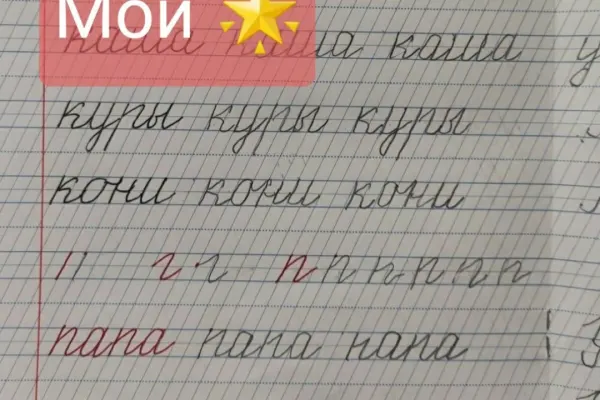 Мои 🌟
каша каша каша
куры куры куры
кони кони кони
п п п п п п
папа папа папа